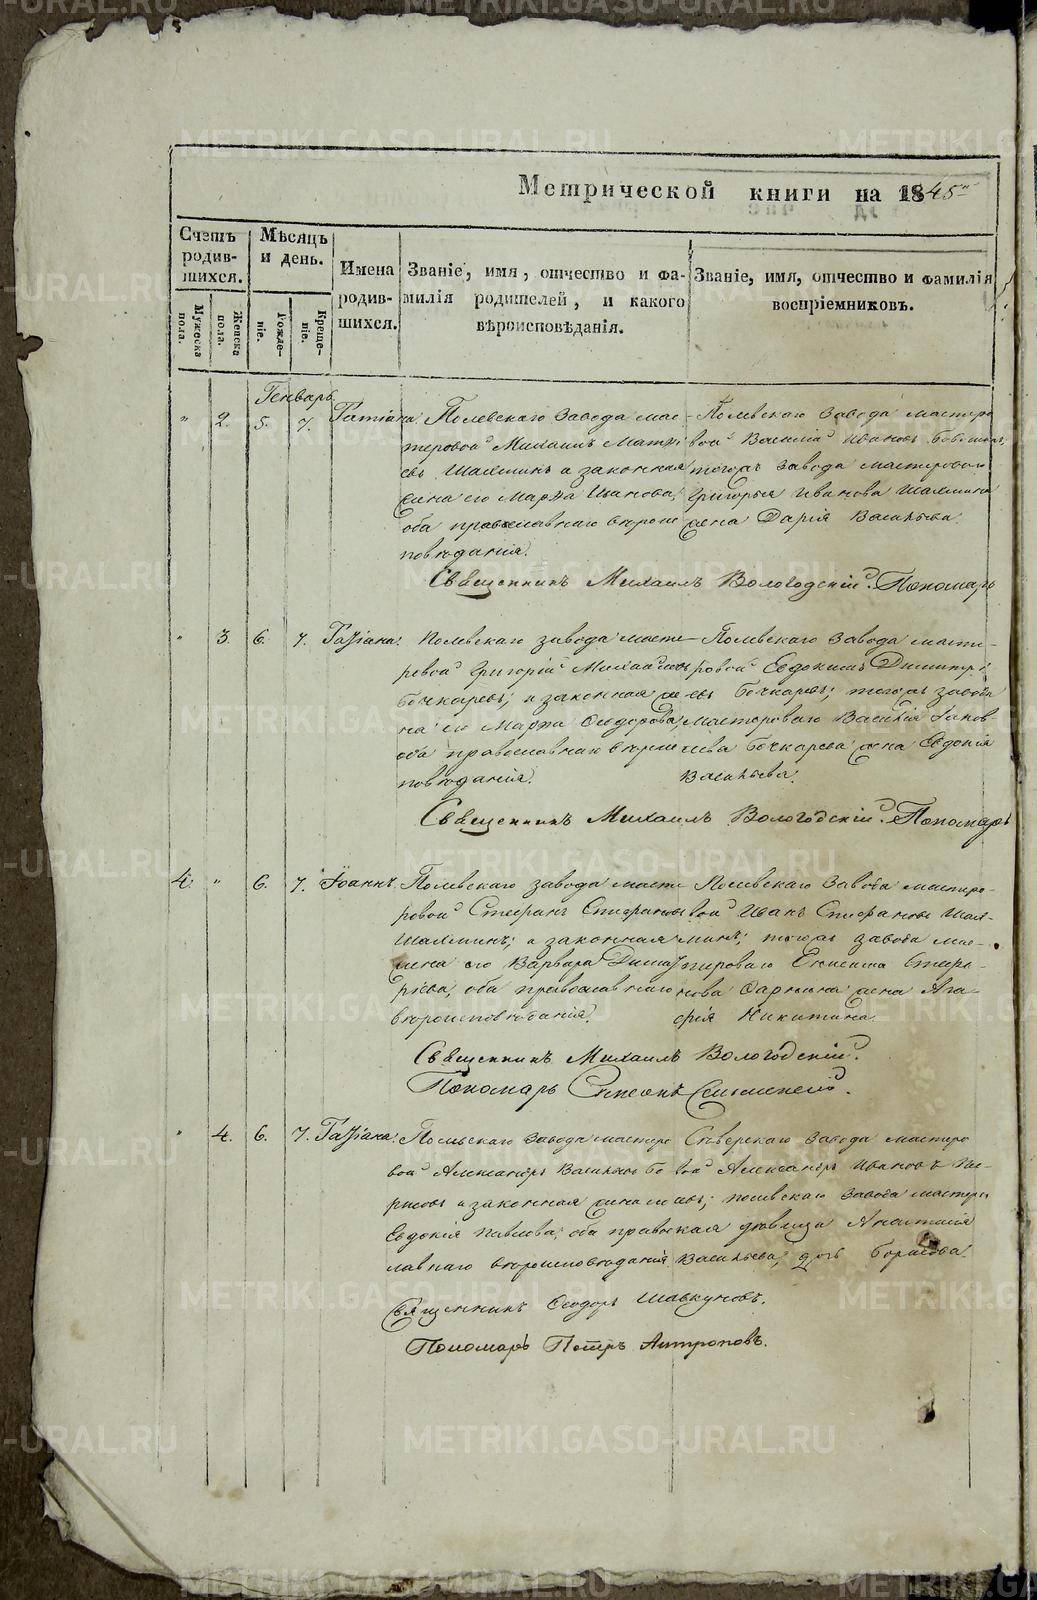 Метрической книги на 1845й
Счетъ родив-шихся.
Мужеска пола.
Женска пола.
Мѣсяцъ и день.
Рожде-ніе.
Креще-ніе.
Имена родив-шихся.
Званіе, имя, отчество и фа-милія родителей, и какого вѣроисповѣданія.
Званіе, имя, отчество и фамилія воспріемниковъ.
Генварь
" 2. 5. 7. Татіана.
Полевскаго завода мас-
теровой Михаилъ Матвѣ
евъ Шахминъ и законная
жена его Марѳа Иванова,
оба православнаго вѣроис
повѣданія.
Полевскаго завода мастеро
вой Василій Ивановъ
тогожъ завода мастероваго
Григорья Иванова Шахмина
жена Дарія Васильева.
Священникъ Михаилъ Вологодскій. Пономарь
" 3. 6. 7. Татіана.
Полевскаго завода масте
ровой Григорій Михайловъ
Бочкаревъ; и законная же
на его Марѳа Ѳеодорова,
оба православнаго вѣроис
повѣданія.
Полевскаго завода масте-
ровой Евдокимъ Димитрі
евъ Бочкаревъ; тогожъ завода
мастероваго Василія Яков
лева Бочкарева жена Евдокія
Васильева.
Священникъ Михаилъ Вологодскій. Пономарь
4. " 6. 7. Іоаннъ.
Полевскаго завода масте
ровой Стефанъ Стефановъ
Шахминъ; и законная
жена его Варвара Димит
ріева, оба православнаго
вѣроисповѣданія.
Полевскаго завода мастеро-
вой Иванъ Стефановъ Шах-
минъ; тогожъ завода мас-
тероваго
нова жена Ага-
фія Никитина.
Священникъ Михаилъ Вологодскій.
Пономарь Симеонъ
" 4. 6. 7. Татіана.
Полевскаго завода мастеро
вой Александръ Васильевъ Бо
рисовъ и законная жена его
Евдокія Павлова; оба право
славнаго вѣроисповѣданія
Сѣверскаго завода мастеро
вой Александръ Ивановъ
Полевскаго завода мастеро
дѣвица Анастасія
Васильева, дочь Борисова.
Священникъ Ѳеодоръ Шавкуновъ.
Пономарь Петръ Антроповъ.
METRIKI.GASO-URAL.RU